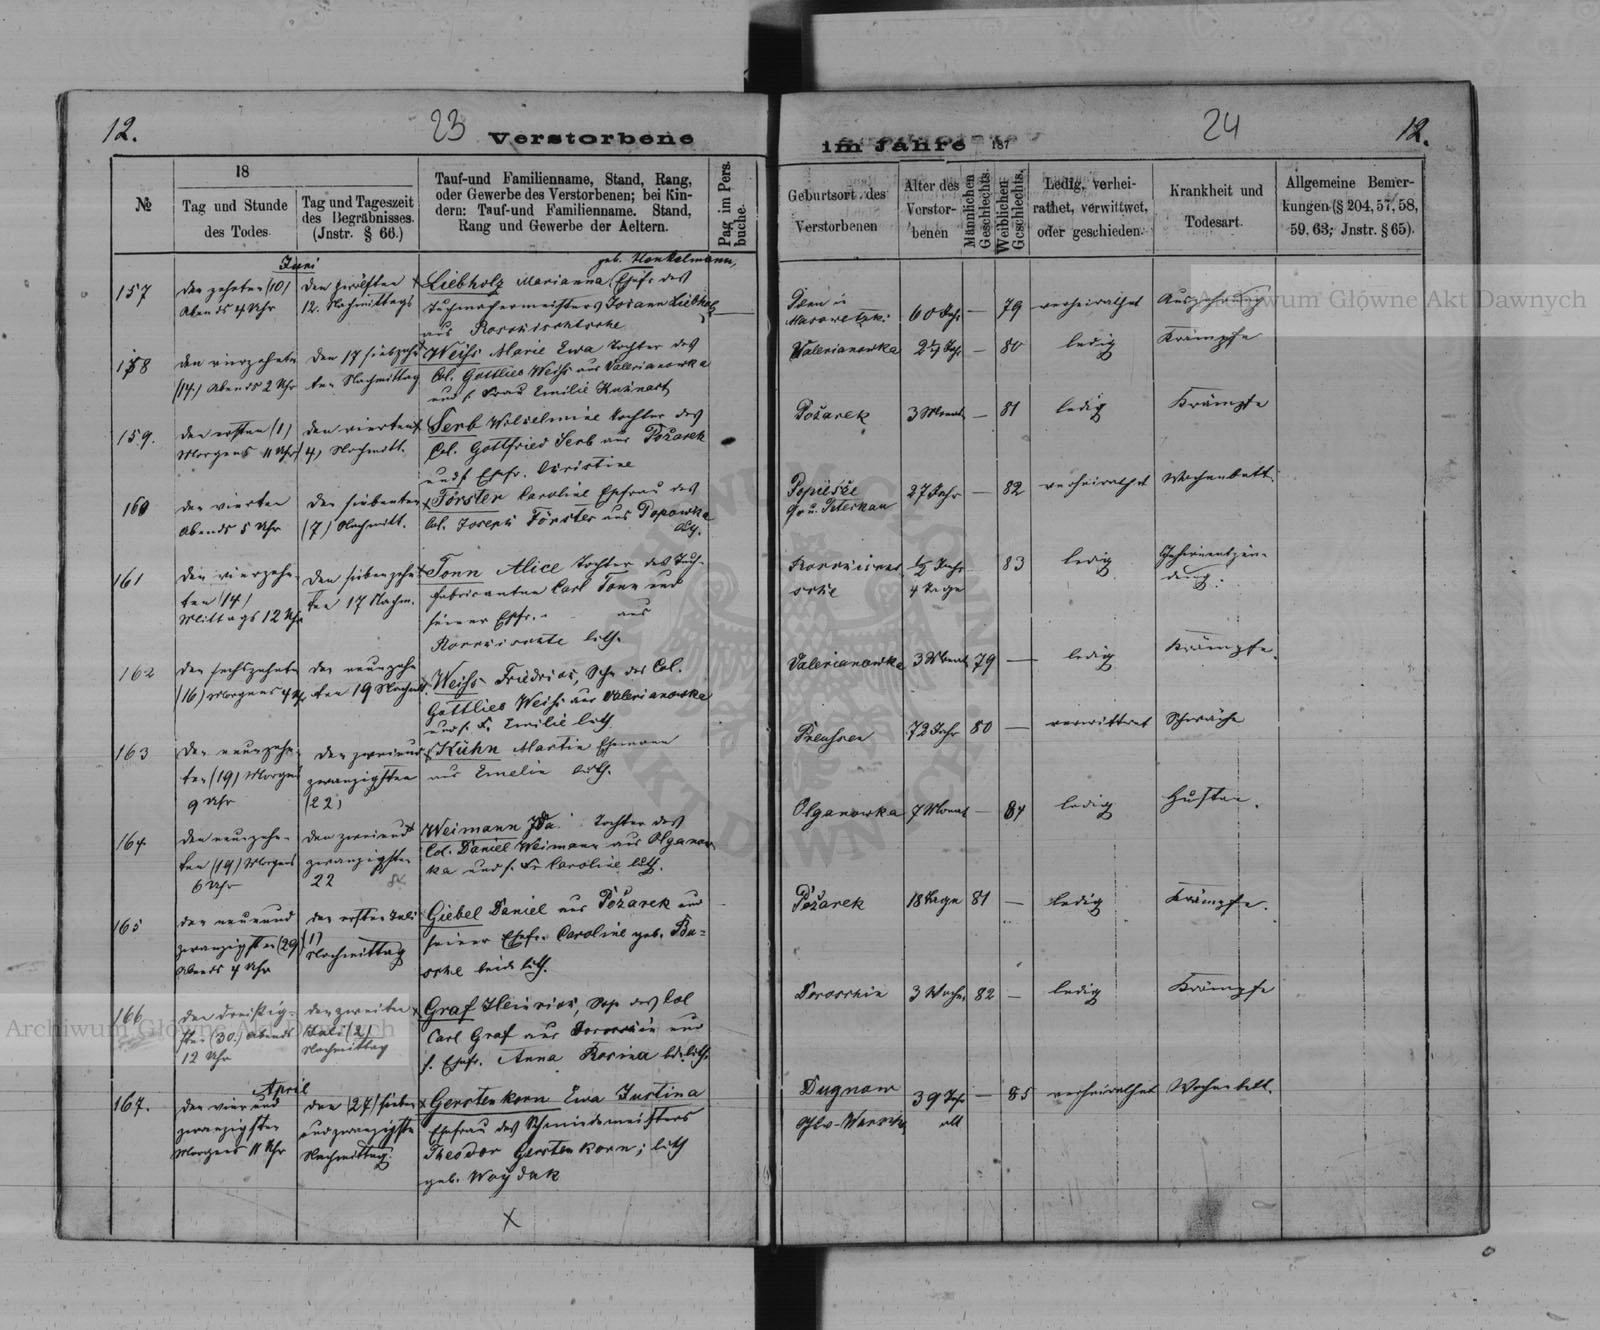 12.
23
Verstorbene
№
18
Tag und Stunde
des Todes.
Tag und Tageszeit
des Begräbnisses.
(Jnstr. § 66.)
Tauf-und Familienname, Stand, Rang,
oder Gewerbe des Verstorbenen; bei Kin-
dern: Tauf-und Familienname. Stand,
Rang und Gewerbe der Aeltern.
Pag im Pers.
buche.
Juni
157
den zehnten (10)
Abends 4 Uhr
den zwölften
12. Nachmittags
geb. Henkelmann,
Liebholz Marianna Ehefr. des
Tuchmachermeisters Johann Liebholz
aus
158
den vierzehnten
(14) Abends 2 Uhr
den 17 siebzehn
ten Nachmittag
Weiss Marie Ewa Tochter des
Col. Gottlieb Weiss aus Valerianowka
und s. Frau Emilie Kuhnert
159.
den ersten (1)
Morgens 11 Uhr
den vierten
(4) Nachmitt.
Serb Wilhelmine Tochter des
Col. Gottfried Serb aus Požarek
und s. Ehefr. Christine
160
den vierten
Abends 5 Uhr
den siebenten
(7) Nachmitt.
Förster Karoline Ehefrau des
Col. Joseph Förster aus Popowka
luth.
161
den vierzehn-
ten (14)
Mittags 12 Uhr
den siebenzehn
ten 17 Nachm.
Tonn Alice Tochter des Tuch-
fabrikanten Carl Tonn und
seiner Ehfr. - aus
luth.
162
den sechszehnten
(16) Morgens 4 Uhr
den neunzehn
ten 19 Nachmitt.
Weiss Friedrich, Sohn des Col.
Gottlieb Weiss aus Valerianowka
und s. F. Emilie luth.
163
den neunzehn-
ten (19) Morgens
9 Uhr
den zweiund
zwanzigsten
(22)
Kühn Martin Ehemann
aus Emelin luth.
164
den neunzehn-
ten (19) Morgens
6 Uhr
den zweiund
zwanzigsten
22
Weimann Ida Tochter des
Col. Daniel Weimann aus Olganow-
ka und s. Fr. Caroline luth.
165
den neunund
zwanzigsten (29)
Abends 4 Uhr
den ersten Juli
(1)
Nachmittag
Giebel Daniel aus Požarek und
seiner Ehefr. Caroline geb. Bu-
beide luth.
166
den dreißig-
sten (30.) Abends
12 Uhr
den zweiten
Juli (2)
Nachmittag
Graf Heinrich, Sohn des Col
Carl Graf aus und
s. Ehefr. Anna Rosina luth.
167.
April
den vierund
zwanzigsten
Morgens 11 Uhr
den (27) sieben
undzwanzigsten
Nachmittag.
Gerstenkorn Ewa Justina
Ehefrau des Schmiedemeisters
Theodor Gerstenkorn; luth
geb. Woydak
X
24
12.
im Jahre 187
Geburtsort des
Verstorbenen
Alter des
Verstor-
benen
Männlichen
Geschlechts.
Weiblichen
Geschlechts.
Ledig, verhei-
rathet, verwittwet,
oder geschieden.
Krankheit und
Todesart.
Allgemeine Bemer-
kungen (§ 204, 57, 58,
59, 63; Jnstr. § 65).
60 Jahr — 79 verheirathet Auszehrung
Valerianowka — 80 ledig Krämpfe
Požarek 3 Monat — 81 ledig Krämpfe
27 Jahr — 82 verheirathet Wochenbett
½ Jahr 83 ledig Gehirnentzün-
4 Tage dung.
Valerianowka 3 Monat 79 — ledig Krämpfe.
Preußen 72 Jahr 80 — verwittwet Schwäche
Olganowka 7 Monat — 84 ledig Husten.
Požarek 18 Tage 81 — ledig Krämpfe.
3 Wochen 82 — ledig Krämpfe
Dugnow 39 Jahr — 85 verheirathet Wochenbett.
alt
Archiwum Główne Akt Dawnych
Archiwum Główne Akt Dawnych
ARCHIWUM GŁÓWNE
AKT DAWNYCH